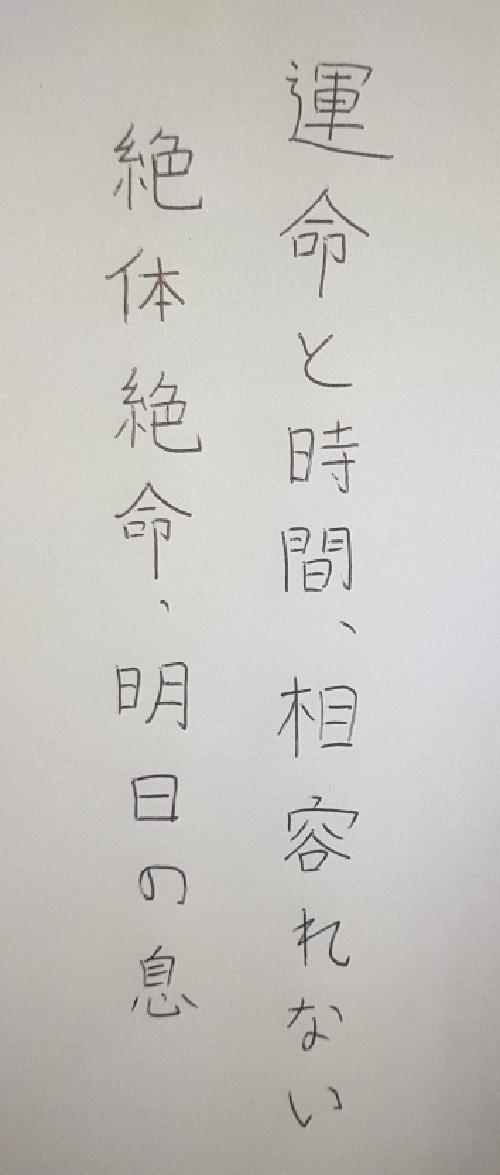 運命と時間、相容れない
絶体絶命、明日の息